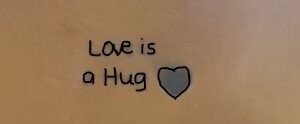 Love is
a Hug